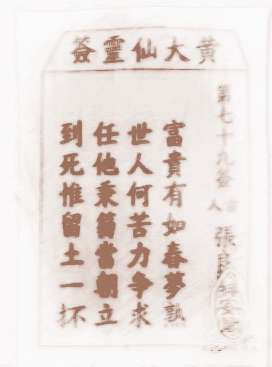 黄大仙靈簽
第七十九簽
古人
張良
富貴有如春夢熟
世人何苦力爭求
任他秉笏當朝立
到死惟留土一抔